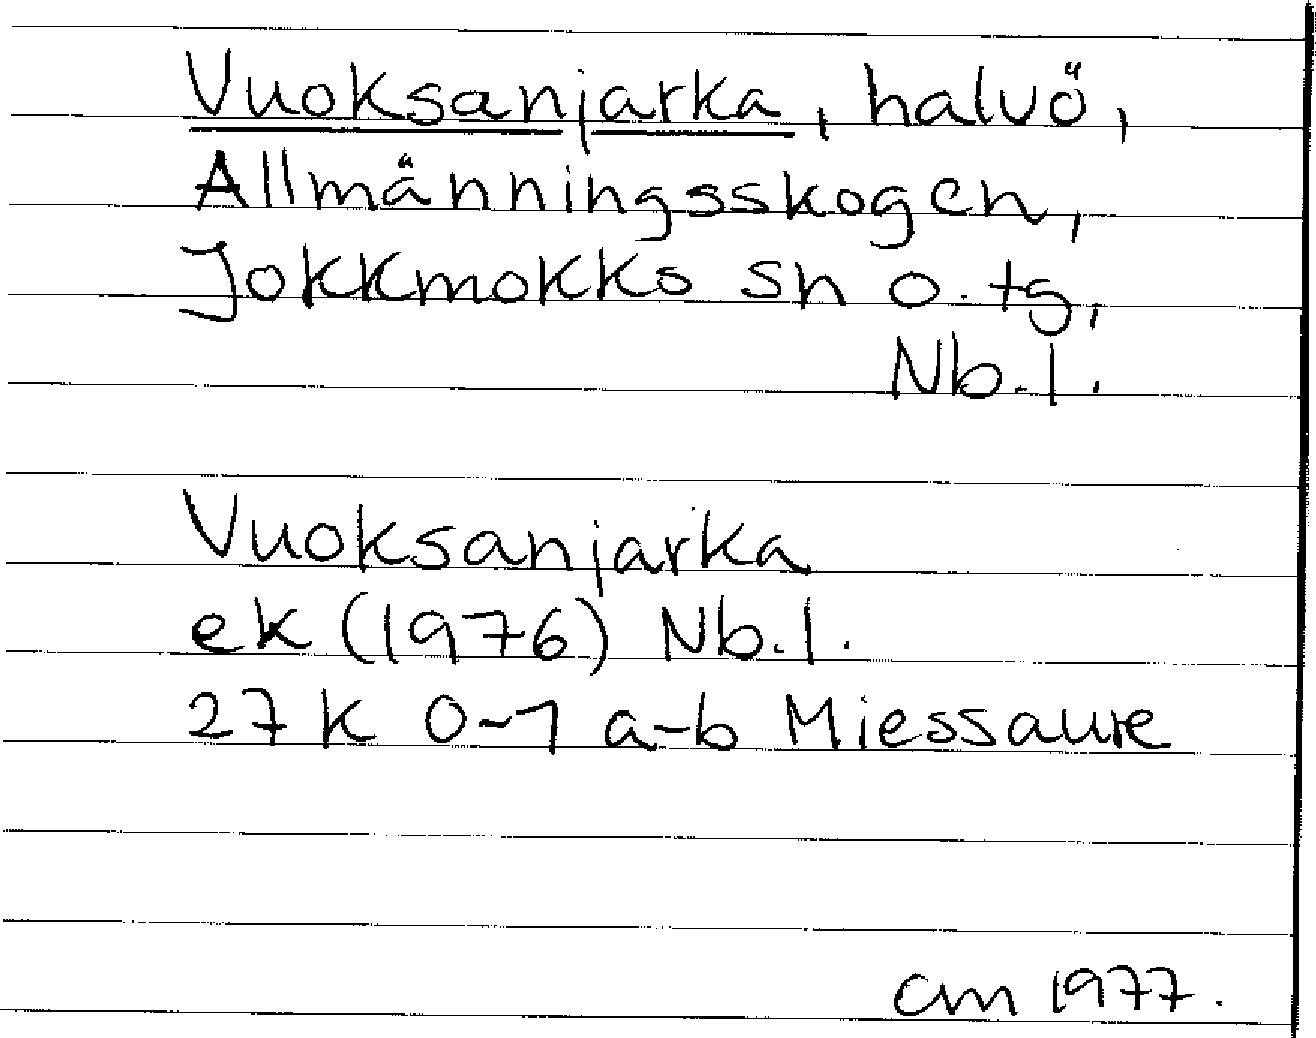 Vuoksanjarka, halvö,
Allmänningsskogen,
Jokkmokks sn o. tg,
Nb. l.
Vuoksanjarka
ek (1976) Nb. l.
27 K 0-1 a-b Miessaure
cm 1977.